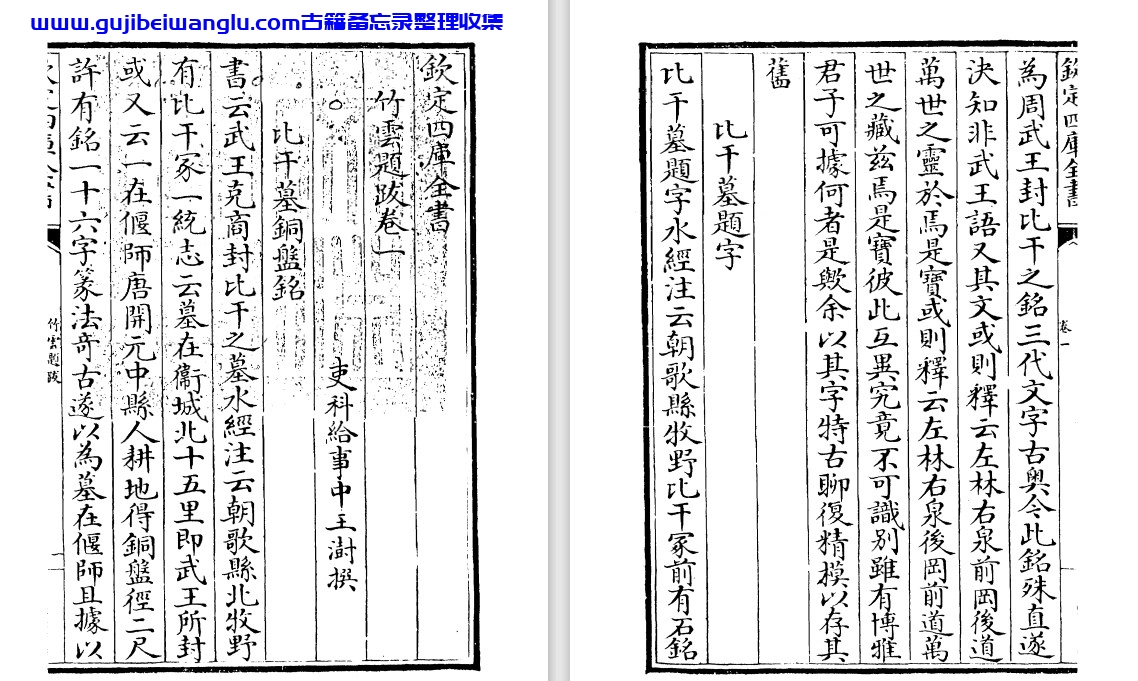 www.gujibeiwanglu.com古籍备忘录整理收集
欽定四庫全書
竹雲題跋卷一
吏科給事中王澍撰
比干墓銅盤銘
書云武王克商封比干之墓水經注云朝歌縣北牧野
有比干冢一統志云墓在衞城北十五里即武王所封
或又云一在偃師唐開元中縣人耕地得銅盤徑二尺
許有銘一十六字篆法竒古遂以為墓在偃師且據以
竹雲題跋
一
欽定四庫全書
卷一
為周武王封比干之銘三代文字古奥今此銘殊直遂
決知非武王語又其文或則釋云左林右泉前岡後道
萬世之靈於焉是寶或則釋云左林右泉後岡前道萬
世之藏兹焉是寶彼此互異究竟不可識别雖有博雅
君子可據何者是歟余以其字特古聊復精模以存其
舊
比干墓題字
比干墓題字水經注云朝歌縣牧野比干冢前有石銘